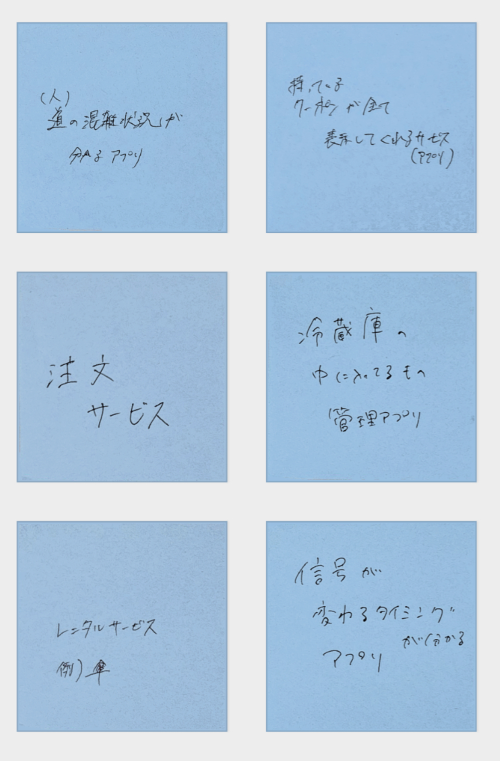 (人)
道の混雑状況が
分かる アプリ
持っている
クーポン が全て
表示してくれるサービス
(アプリ)
注文
サービス
冷蔵庫の
中に入ってるもの
管理アプリ
レンタルサービス
例) 傘
信号が
変わるタイミング
が分かる
アプリ